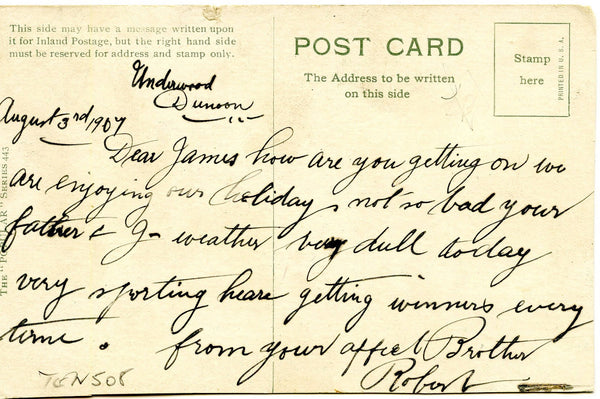 This side may have a message written upon
it for Inland Postage, but the right hand side
must be reserved for address and stamp only.
POST CARD
The Address to be written
on this side
Stamp
here
PRINTED IN U.S.A.
THE "POPULAR" SERIES 443
Underwood
Dunoon
August 3rd 1907
Dear James how are you getting on we
are enjoying our holidays not so bad your
father & I weather very dull today
very sporting heare getting winners every
time. from your affect Brother
Robert
TEN508